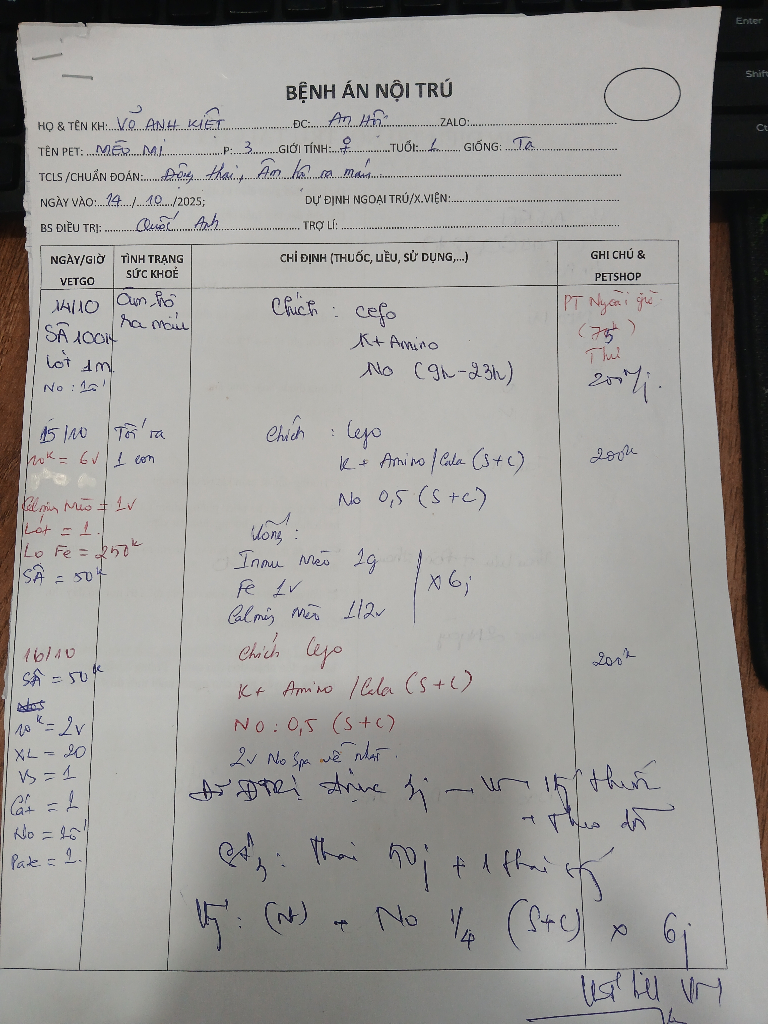 BỆNH ÁN NỘI TRÚ
HỌ & TÊN KH: VÕ ANH KIỆT ĐC: An Hội ZALO:
TÊN PET: MÈO MI P: 3 GIỚI TÍNH: ♀ TUỔI: 1 GIỐNG: Ta
TCLS /CHUẨN ĐOÁN: Động thai, Âm hộ ra máu
NGÀY VÀO: 14 / 10 /2025; DỰ ĐỊNH NGOẠI TRÚ/X.VIỆN:
BS ĐIỀU TRỊ: Quốc Anh TRỢ LÍ:
NGÀY/GIỜ VETGO
TÌNH TRẠNG SỨC KHOẺ
CHỈ ĐỊNH (THUỐC, LIỀU, SỬ DỤNG,...)
GHI CHÚ & PETSHOP
14/10
SÂ 100k
Lót 1m
No: 1
Âm hộ
ra máu
Chích : cefo
K + Amino
No (9h-23h)
PT Ngoài giờ
(75k)
Thu
200k/j.
15/10
10k = 6v
Calmin Mèo = 1v
Lót = 1.
Lo Fe = 250k
SÂ = 50k
Tối ra
1 con
Chích : Cefo
K + Amino / Cala (S+C)
No 0,5 (S+C)
Uống :
Inmu Mèo 1g
Fe 1v
Calmin Mèo 1/2v
x 6j
200k
16/10
SÂ = 50k
10k = 2v
XL = 20
VS = 1
Cát = 1
No =
Pate = 1.
Chích Cefo
K + Amino / Cala (S+C)
No : 0,5 (S+C)
2v No Spa về nhà.
200k
thuốc
+ theo dõi
: Thai 50j + 1 thai
: (N) + No 1/4 (S+C) x 6j